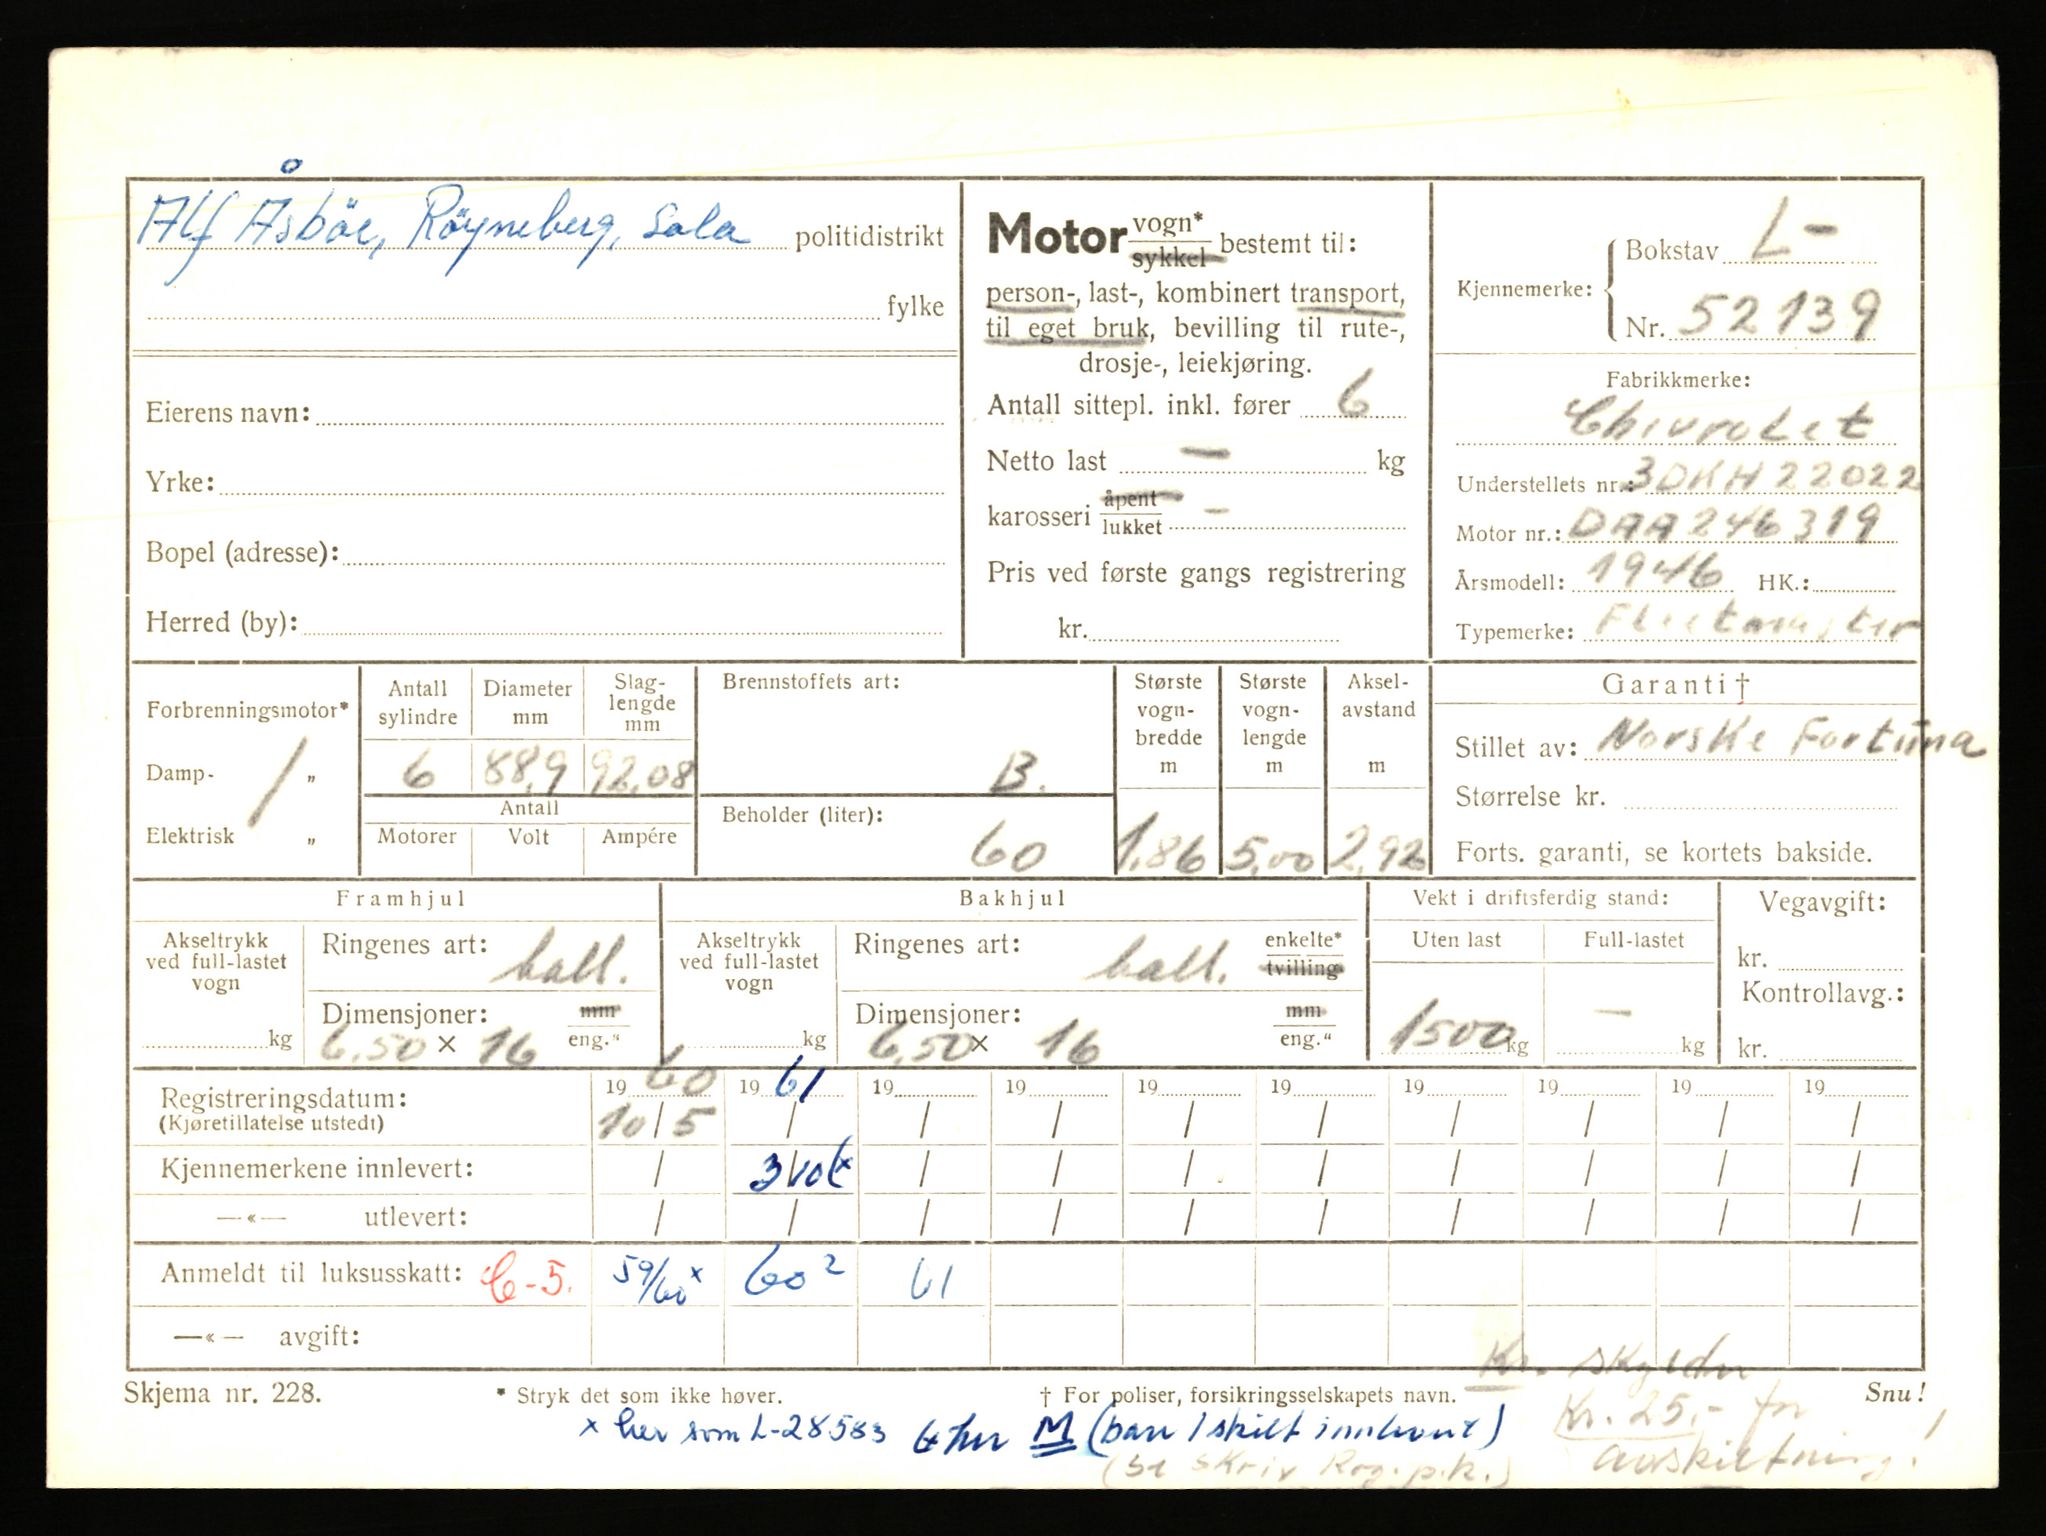 Alf Åsböe, Röyneberg, Sola politidistrikt
fylke
Eierens navn:
Yrke:
Bopel (adresse):
Herred (by):
Motor vogn* sykkel bestemt til:
person-, last-, kombinert transport,
til eget bruk, bevilling til rute-,
drosje-, leiekjøring.
Antall sittepl. inkl. fører 6
Netto last — kg
karosseri åpent lukket —
Pris ved første gangs registrering
kr.
Kjennemerke: Bokstav L-
Nr. 52139
Fabrikkmerke:
Chivrolet
Understellets nr.: 3DKH22022
Motor nr.: DAA246319
Årsmodell: 1946 HK.:
Typemerke: Fleetmaster
Forbrenningsmotor*
Damp- „
Elektrisk „
Antall sylindre Diameter mm Slag-lengde mm
6 88,9 92,08
Antall
Motorer Volt Ampére
Brennstoffets art:
B.
Beholder (liter):
60
Største vogn-bredde m
1,86
Største vogn-lengde m
5,00
Aksel-avstand m
2,92
Garanti †
Stillet av: Norske Fortuna
Størrelse kr.
Forts. garanti, se kortets bakside.
Framhjul
Akseltrykk ved full-lastet vogn
kg
Ringenes art: ball.
Dimensjoner: mm
6,50 × 16 eng."
Bakhjul
Akseltrykk ved full-lastet vogn
kg
Ringenes art: ball. enkelte* tvilling
Dimensjoner: mm
6,50 × 16 eng."
Vekt i driftsferdig stand:
Uten last Full-lastet
1500 kg — kg
Vegavgift:
kr.
Kontrollavg.:
kr.
19 60 19 61 19 19 19 19 19 19 19 19
Registreringsdatum: 10/5 / / / / / / / / /
(Kjøretillatelse utstedt)
Kjennemerkene innlevert: / 3/10 x / / / / / / / /
—«— utlevert: / / / / / / / / / /
Anmeldt til luksusskatt: C-5. 59/60 x 60 2 61
—«— avgift:
Skjema nr. 228. * Stryk det som ikke høver. † For poliser, forsikringsselskapets navn. Snu!
Kr. skylder
Kr. 25,- for
avskiltning!
x her som L-28583 M (bare 1 skilt innlevert)
(se skriv Rog. p.k.)